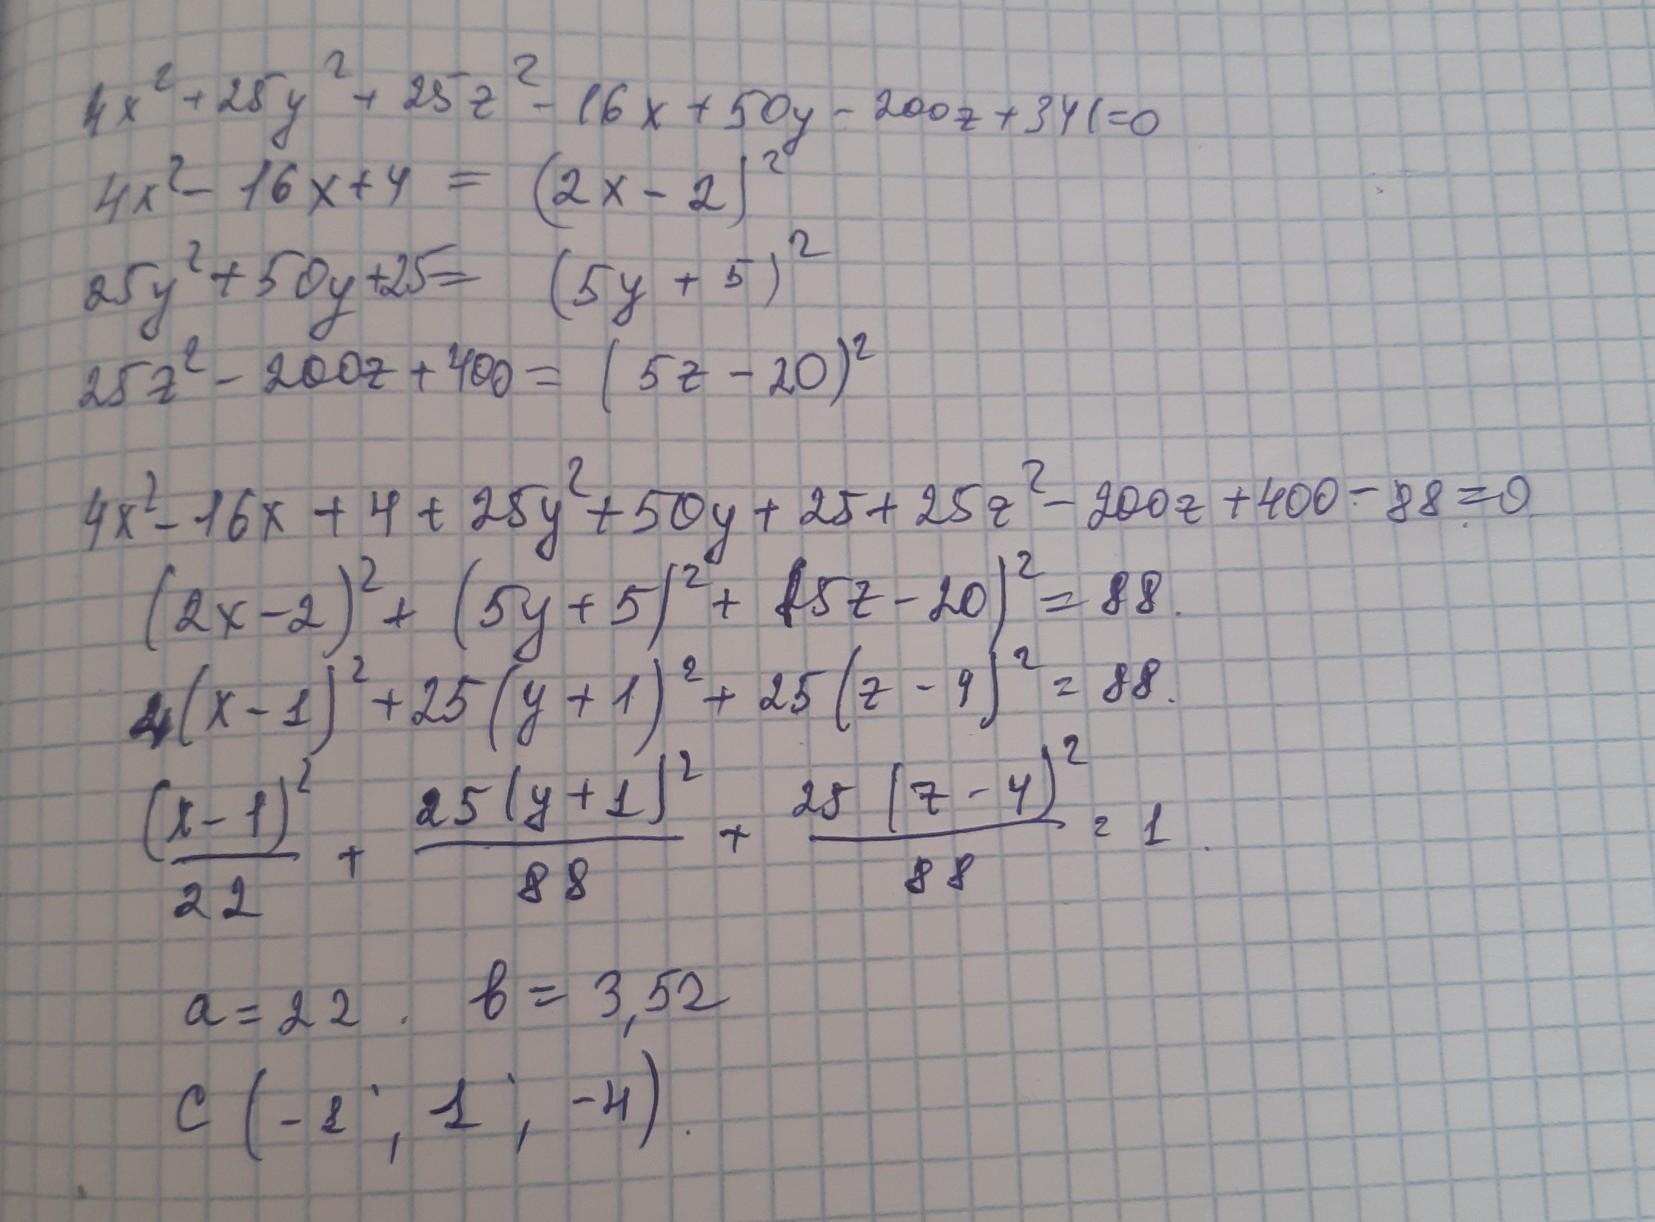 4x² + 25y² + 25z² - 16x + 50y - 200z + 341 = 0
4x² - 16x + 4 = (2x - 2)²
25y² + 50y + 25 = (5y + 5)²
25z² - 200z + 400 = (5z - 20)²
4x² - 16x + 4 + 25y² + 50y + 25 + 25z² - 200z + 400 - 88 = 0
(2x - 2)² + (5y + 5)² + (5z - 20)² = 88.
4(x - 1)² + 25(y + 1)² + 25(z - 4)² = 88.
(x - 1)²/22 + 25(y + 1)²/88 + 25(z - 4)²/88 = 1.
a = 22. в = 3,52
C (-1; 1; -4).